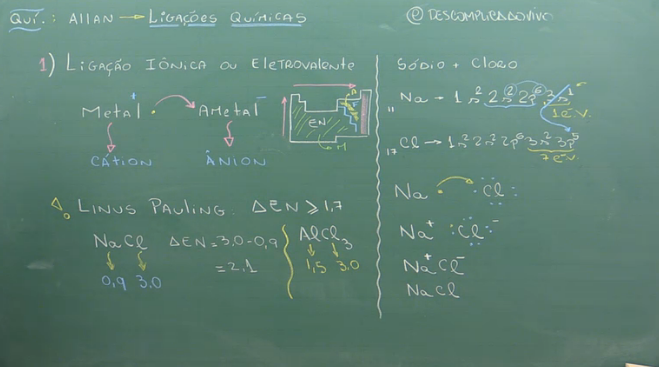 QUÍ.: ALLAN → LIGAÇÕES QUÍMICAS
@DESCOMPLICADOVIVO
1) LIGAÇÃO IÔNICA OU ELETROVALENTE
Metal⁺ AMetal⁻
CÁTION ÂNION
EN
M
LINUS PAULING. ΔEN ≥ 1,7
NaCl ΔEN = 3,0 - 0,9
= 2,1
0,9 3,0
AlCl₃
1,5 3,0
SÓDIO + CLORO
₁₁Na → 1s² 2s² 2p⁶ 3s¹
1e⁻v.
₁₇Cl → 1s² 2s² 2p⁶ 3s² 3p⁵
7e⁻v.
Na. :Cl:
Na⁺ :Cl:⁻
Na⁺Cl⁻
NaCl